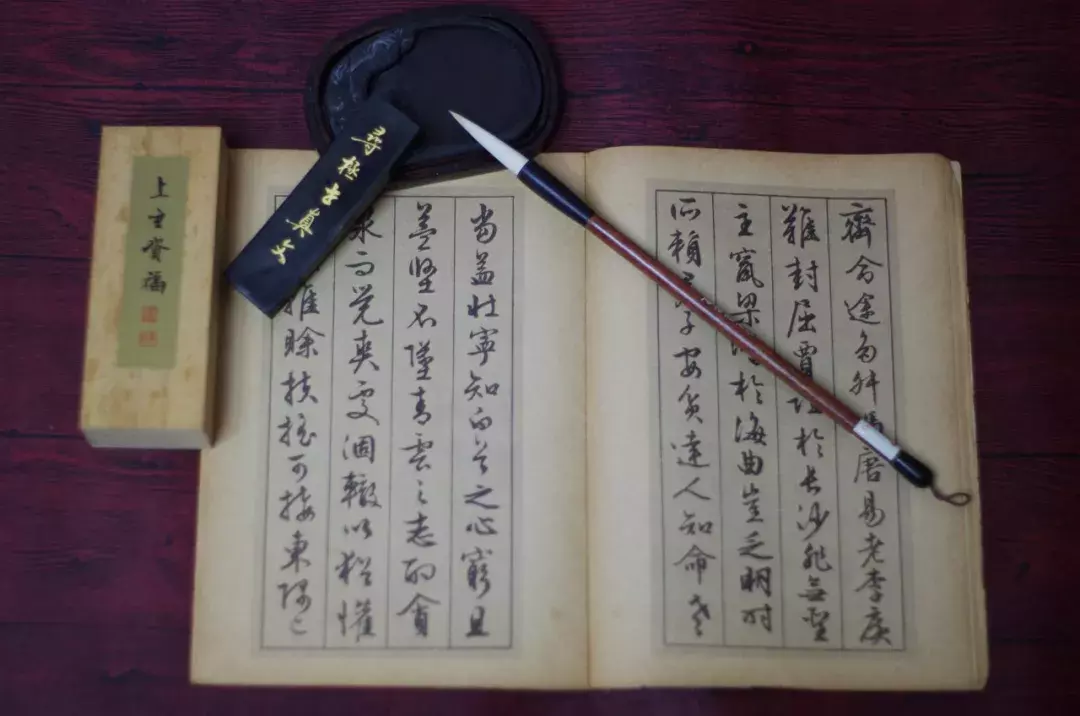 上主福
尋極真文
齊命途多舛馮唐易老李廣
難封屈賈誼於長沙非無聖
主竄梁鴻於海曲豈乏明時
所賴君子安貧達人知命老
當益壯寧知白首之心窮且
益堅不墜青雲之志酌貪
泉而覺爽處涸轍以猶懽
雖賒扶搖可接東隅已